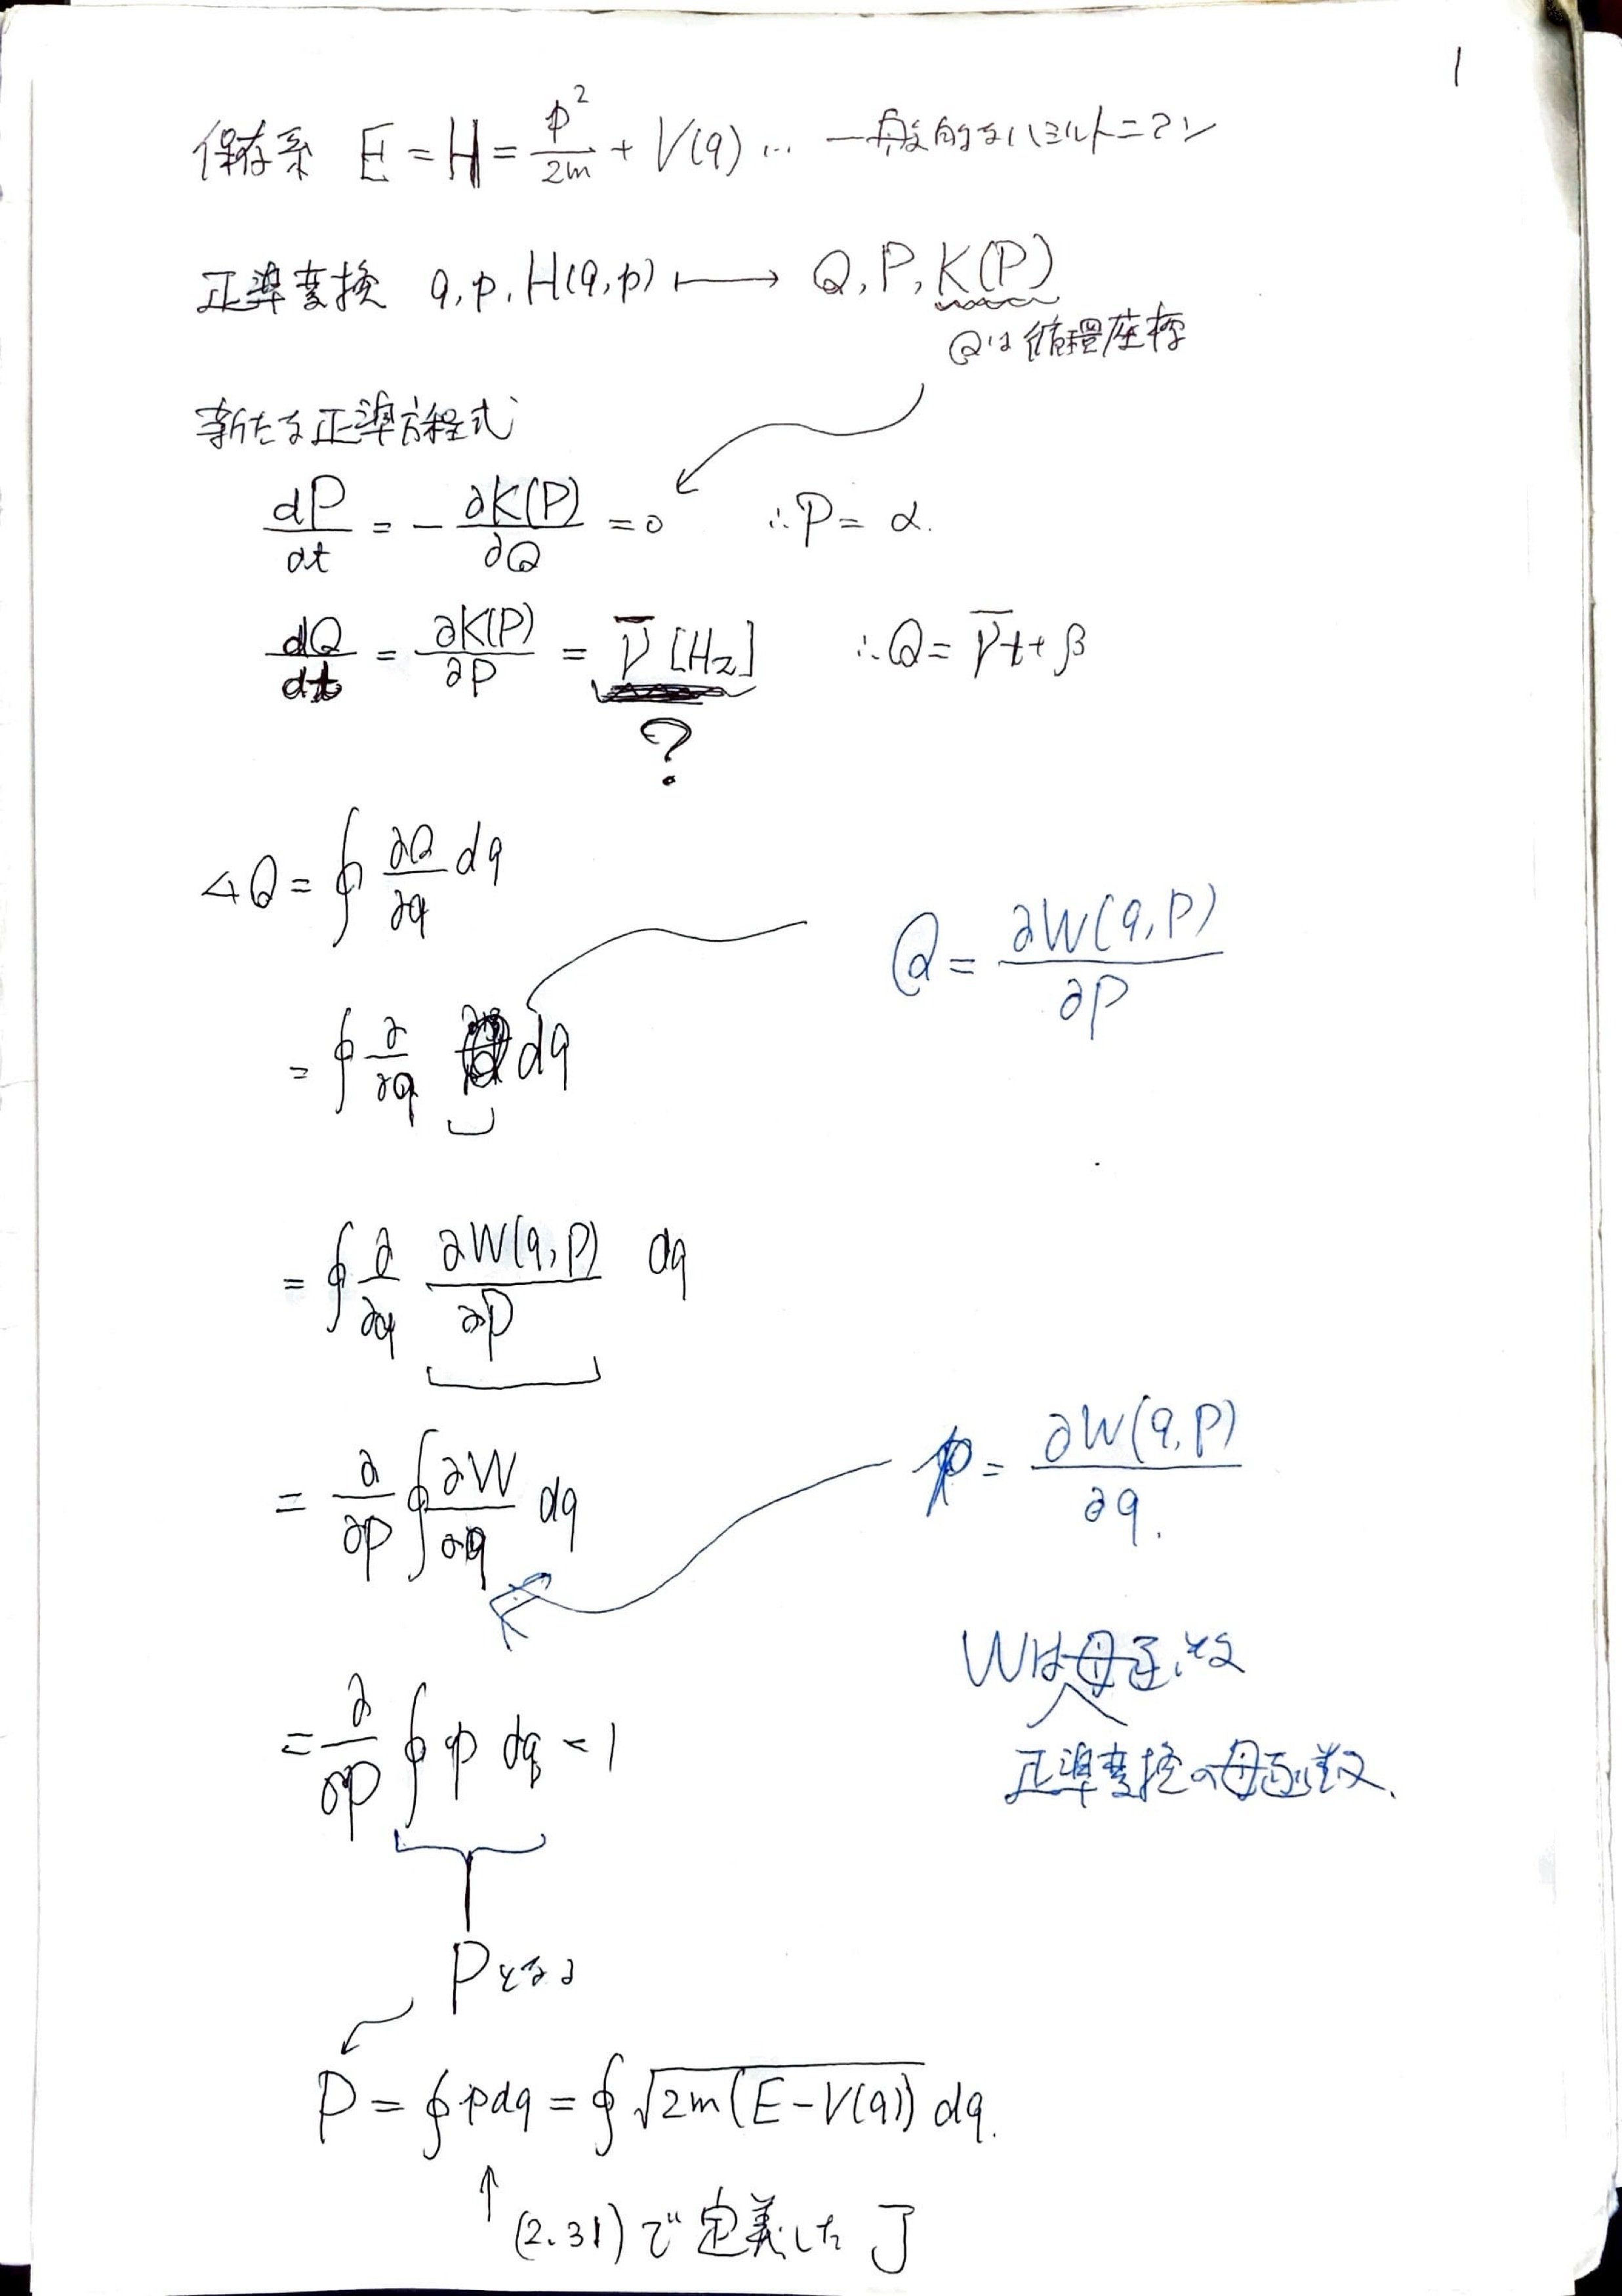 1
保存系 E = H = p²/2m + V(q) … 一般的なハミルトニアン
正準変換 q, p, H(q,p) ⟼ Q, P, K(P)
Qは循環座標
新たな正準方程式
dP/dt = - ∂K(P)/∂Q = 0 ∴ P = α.
dQ/dt = ∂K(P)/∂P = ν̅ [Hz] ∴ Q = ν̅t + β
?
ΔQ = ∮ ∂Q/∂q dq
Q = ∂W(q,P)/∂P
= ∮ ∂/∂q dq
= ∮ ∂/∂q ∂W(q,P)/∂P dq
= ∂/∂P ∮ ∂W/∂q dq
p = ∂W(q,P)/∂q.
Wは母函数
= ∂/∂P ∮ p dq = 1
正準変換の母函数.
Pとなる
P = ∮ p dq = ∮ √2m(E - V(q)) dq.
↑ (2.31) で定義した J